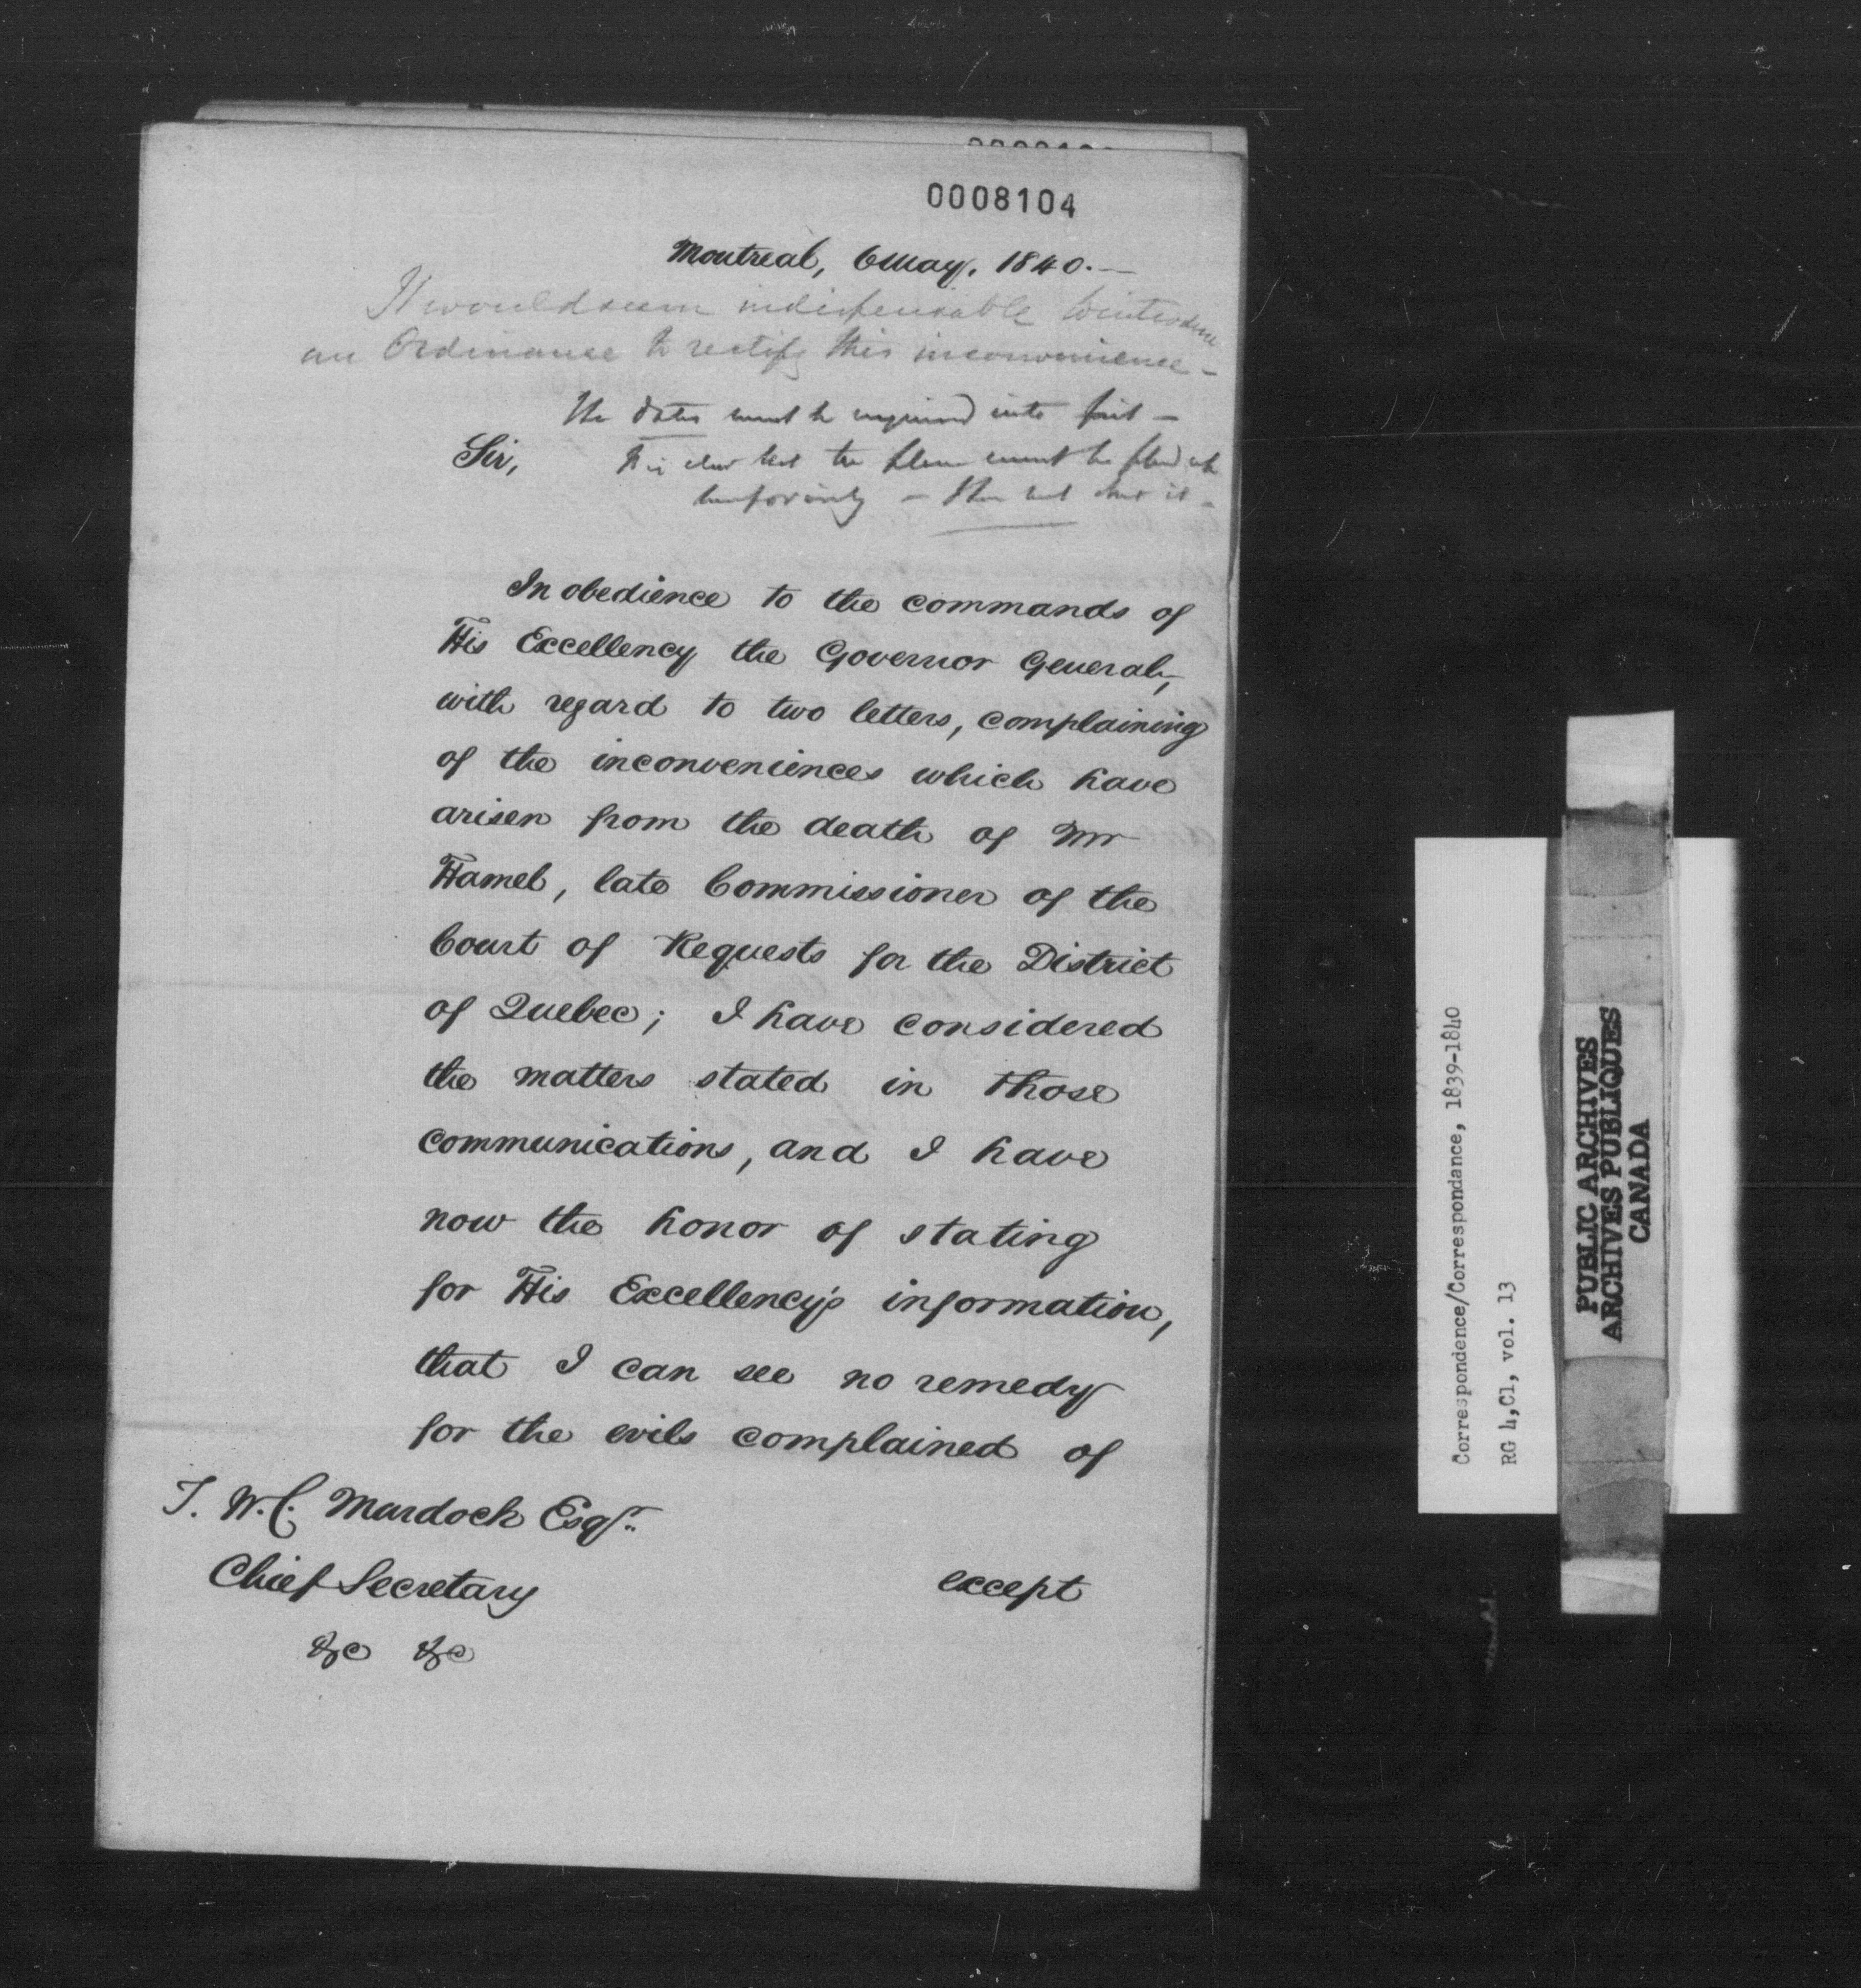 0008104
Montreal, 6 May, 1840.—
It would seem indispensable to introduce
an Ordinance to rectify this inconvenience -
The dates must be inquired into first —
Sir,
that the must be
temporarily —
In obedience to the commands of
His Excellency the Governor General,
with regard to two letters, complaining
of the inconveniences which have
arisen from the death of Mr
Hamel, late Commissioner of the
Court of Requests for the District
of Quebec; I have considered
the matters stated in those
communications, and I have
now the honor of stating
for His Excellency's information,
that I can see no remedy
for the evils complained of
T. W. C. Murdoch Esqr.
Chief Secretary
&c &c
except
Correspondence/Correspondance, 1839-1840
RG 4,C1, vol. 13
PUBLIC ARCHIVES
ARCHIVES PUBLIQUES
CANADA